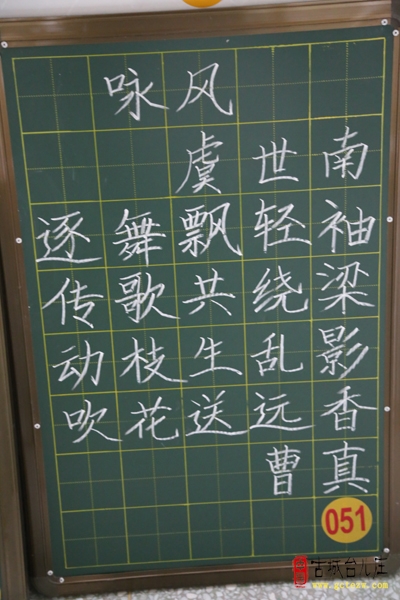 咏风
虞世南
逐舞飘轻袖
传歌共绕梁
动枝生乱影
吹花送远香
曹真
051
古城台儿庄